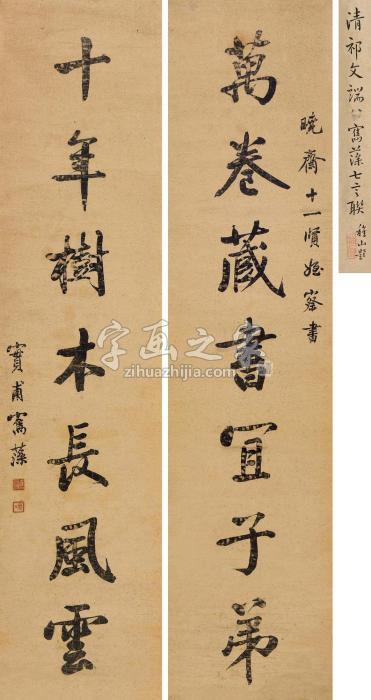 清祁文端公寯藻七言联
萬卷藏書宜子弟
曉齋十一賢姪察書
十年樹木長風雲
實甫寯藻
字画之家
zihuazhijia.com